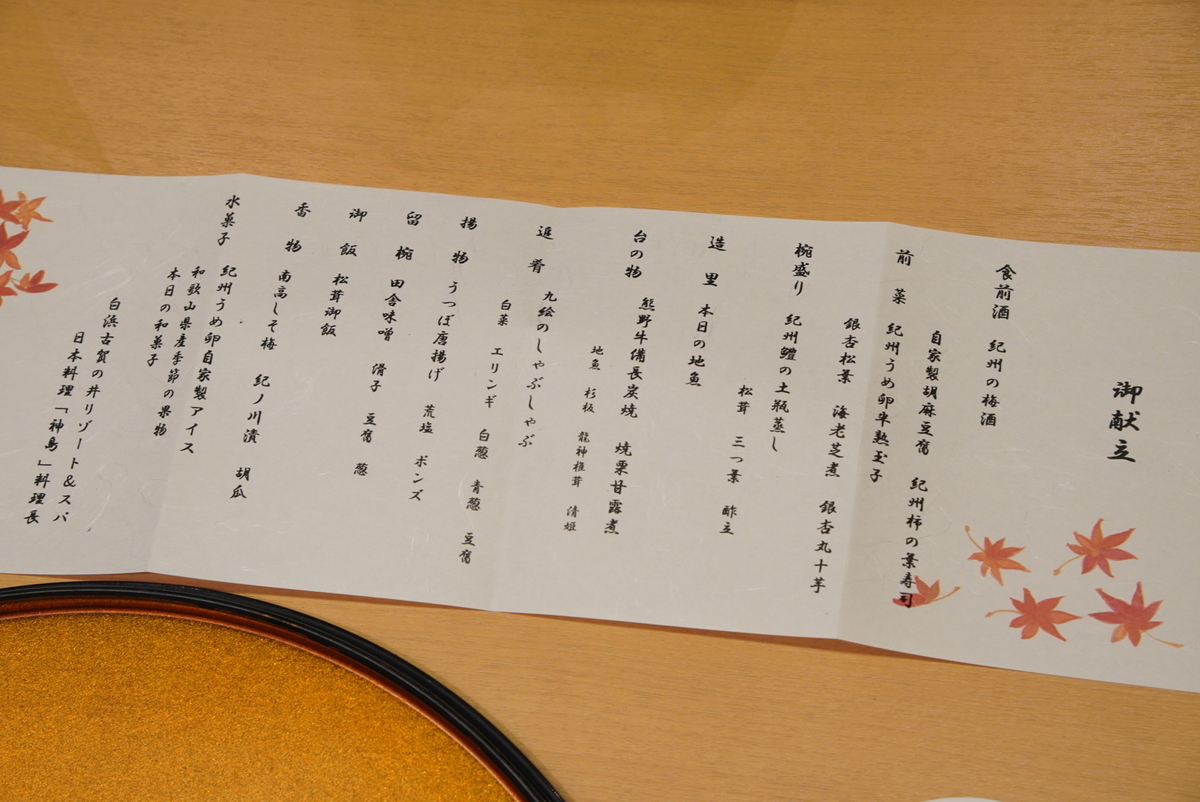 御献立
食前酒 紀州の梅酒
自家製胡麻豆腐 紀州柿の葉寿司
前菜 紀州うめ卵半熟玉子
銀杏松葉 海老芝煮 銀杏丸十芋
椀盛り 紀州鱧の土瓶蒸し
松茸 三つ葉 酢立
造里 本日の地魚
台の物 熊野牛備長炭焼 焼栗甘露煮
地魚 杉板 龍神椎茸 清姫
追肴 九絵のしゃぶしゃぶ
白菜 エリンギ 白葱 青葱 豆腐
揚物 うつぼ唐揚げ 荒塩 ポンズ
留椀 田舎味噌 滑子 豆腐 葱
御飯 松茸御飯
香物 南高しそ梅 紀ノ川漬 胡瓜
水菓子 紀州うめ卵自家製アイス
和歌山県産季節の果物
本日の和菓子
白浜古賀の井リゾート&スパ
日本料理「神島」料理長